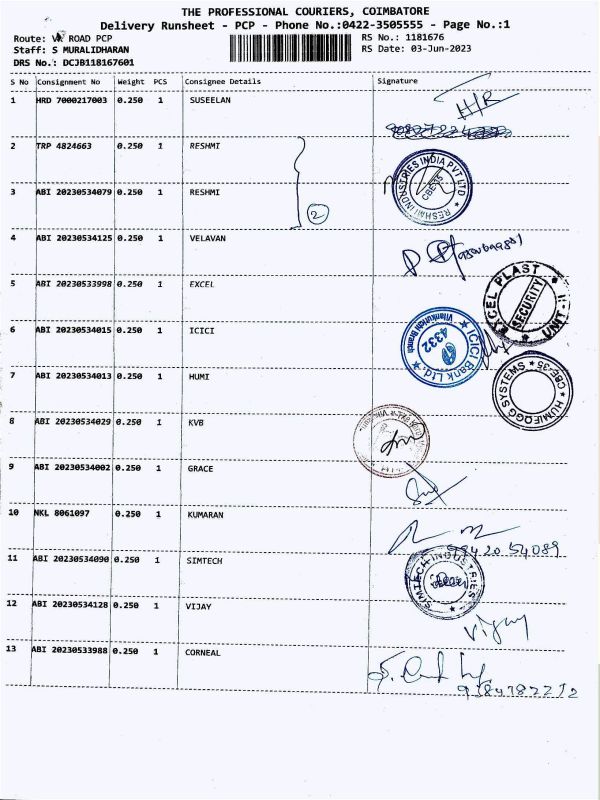 THE PROFESSIONAL COURIERS, COIMBATORE
Delivery Runsheet - PCP - Phone No.:0422-3505555 - Page No.:1
Route: ROAD PCP
Staff: S MURALIDHARAN
DRS No.: DCJB118167601
RS No.: 1181676
RS Date: 03-Jun-2023
S No Consignment No Weight PCS Consignee Details Signature
1 HRD 7000217003 0.250 1 SUSEELAN
H/R
2 TRP 4824663 0.250 1 RESHMI
RESHMI INDUSTRIES INDIA PVT LTD
CBE-35
3 ABI 20230534079 0.250 1 RESHMI
2
4 ABI 20230534125 0.250 1 VELAVAN
5 ABI 20230533998 0.250 1 EXCEL
EXCEL PLAST UNIT-II
SECURITY
6 ABI 20230534015 0.250 1 ICICI
ICICI Bank Ltd.
Vilankurichi Branch
4332
7 ABI 20230534013 0.250 1 HUMI
HUMIEQG SYSTEMS * CBE-35
8 ABI 20230534029 0.250 1 KVB
9 ABI 20230534002 0.250 1 GRACE
10 NKL 8061097 0.250 1 KUMARAN
98420 54089
11 ABI 20230534090 0.250 1 SIMTECH
SIMTECH INDUSTRIES
12 ABI 20230534128 0.250 1 VIJAY
Vijay
13 ABI 20230533988 0.250 1 CORNEAL